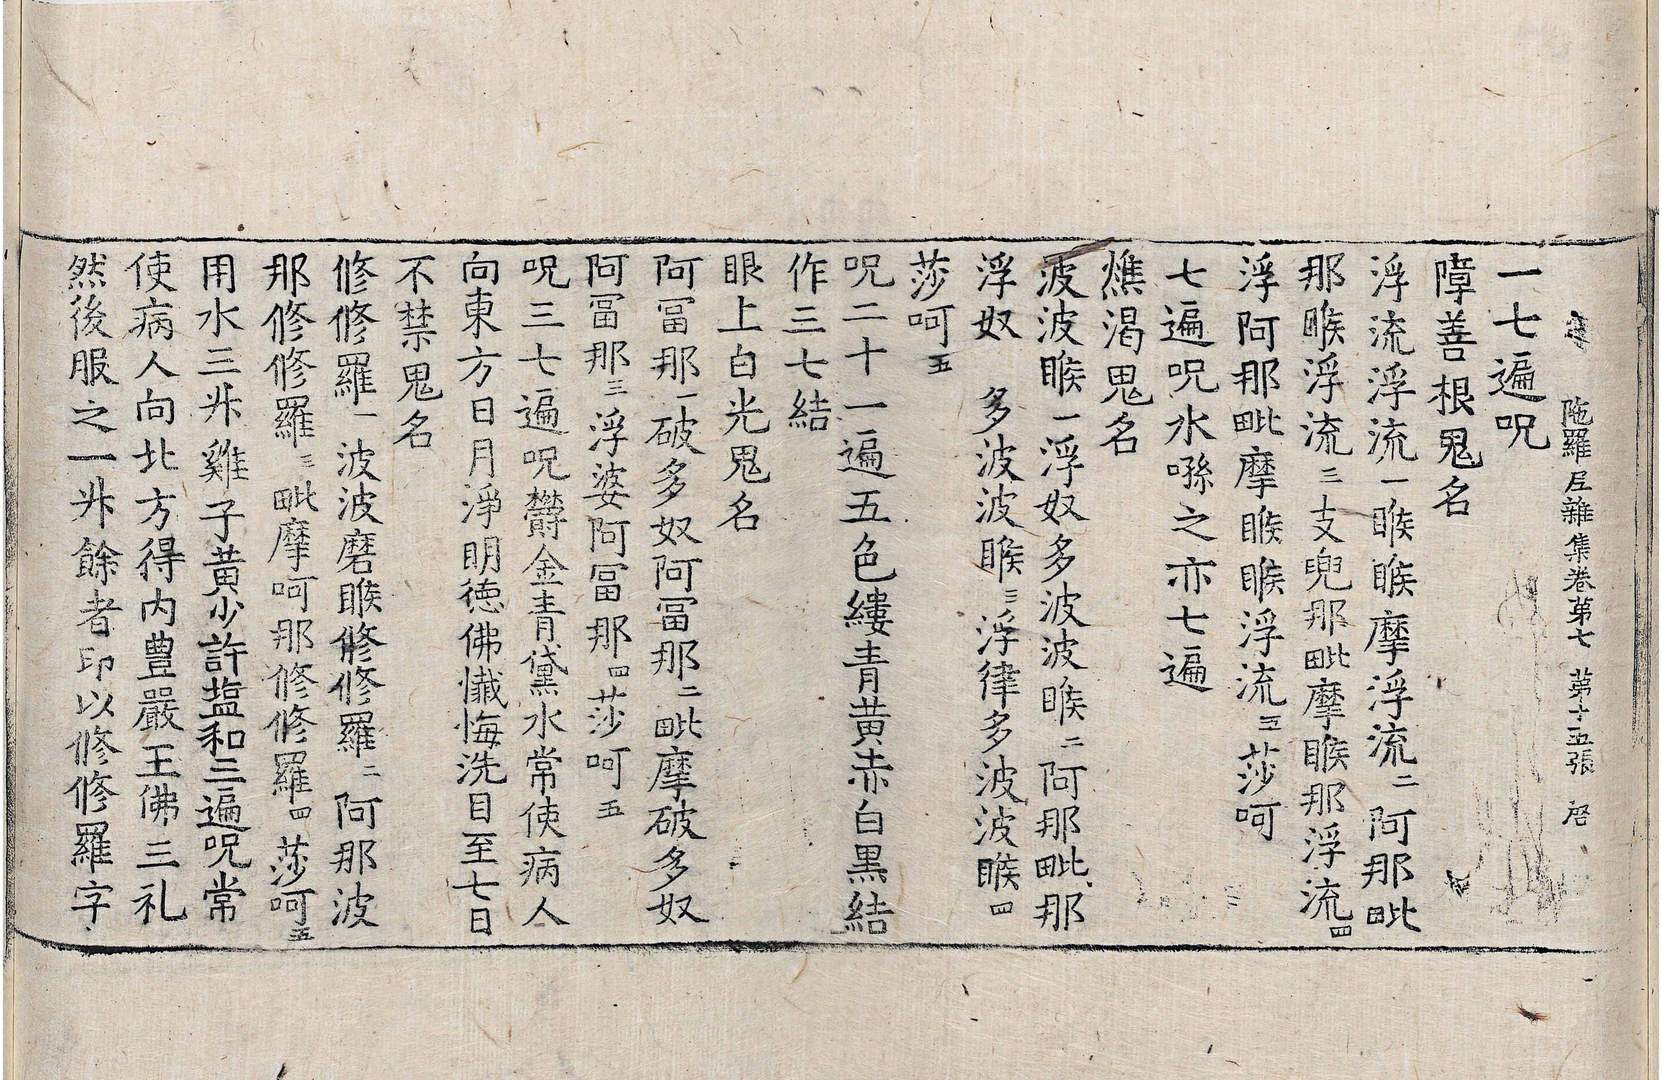 陁羅尼雜集卷第七 第十五張 㕃
一七遍呪
障善根鬼名
浮流浮流一睺睺摩浮流二阿那毗
那睺浮流三支兜那毗摩睺那浮流四
浮阿那毗摩睺睺浮流五莎呵
七遍呪水噀之亦七遍
燋渴鬼名
波波睺一浮奴多波波睺二阿那毗那
浮奴 多波波睺三浮律多波波睺四
莎呵五
呪二十一遍五色縷青黃赤白黑結
作三七結
眼上白光鬼名
阿冨那一破多奴阿冨那二毗摩破多奴
阿冨那三浮婆阿冨那四莎呵五
呪三七遍呪欝金青黛水常使病人
向東方日月淨明德佛懺悔洗目至七日
不禁鬼名
修修羅一波波磨睺修修羅二阿那波
那修修羅三毗摩呵那修修羅四莎呵五
用水三升雞子黃少許塩和三遍呪常
使病人向北方得內豊嚴王佛三礼
然後服之一升餘者印以修修羅字